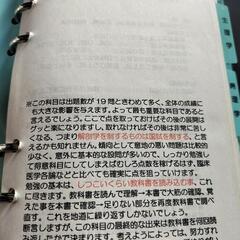 ※この科目は出題数が19問ときわめて多く、全体の成績に
も大きな影響を与えます。よって最も重要な科目であると言
えるでしょう。ここで点を取っておけばその後の展開は
グッと楽になりますし、取れなければその後は非常に苦し
くなる、つまり解剖学を制するものは国試を制する、と言
えるかも知れません。傾向として意地の悪い問題は比較的
少なく、意外に基本的な設問が多いので、しっかり勉強し
て得意科目にしてしまえばむしろ点数を稼げるはず。臨床
医学各論などと比べても確実に点を狙っていけます。
勉強の基本は、しつこいくらい教科書を読み込む事、に
尽きます。教科書を読んで理解→一問一答で大筋の確認、覚
えた事を本書で確認→足りない部分を再度教科書で調べ
直す。これを地道に繰り返すしかないでしょう。
断言しますが、この科目の最終的な出来は教科書を何回読
み返したかで決まります。考えようによっては、努力すれ
生理学